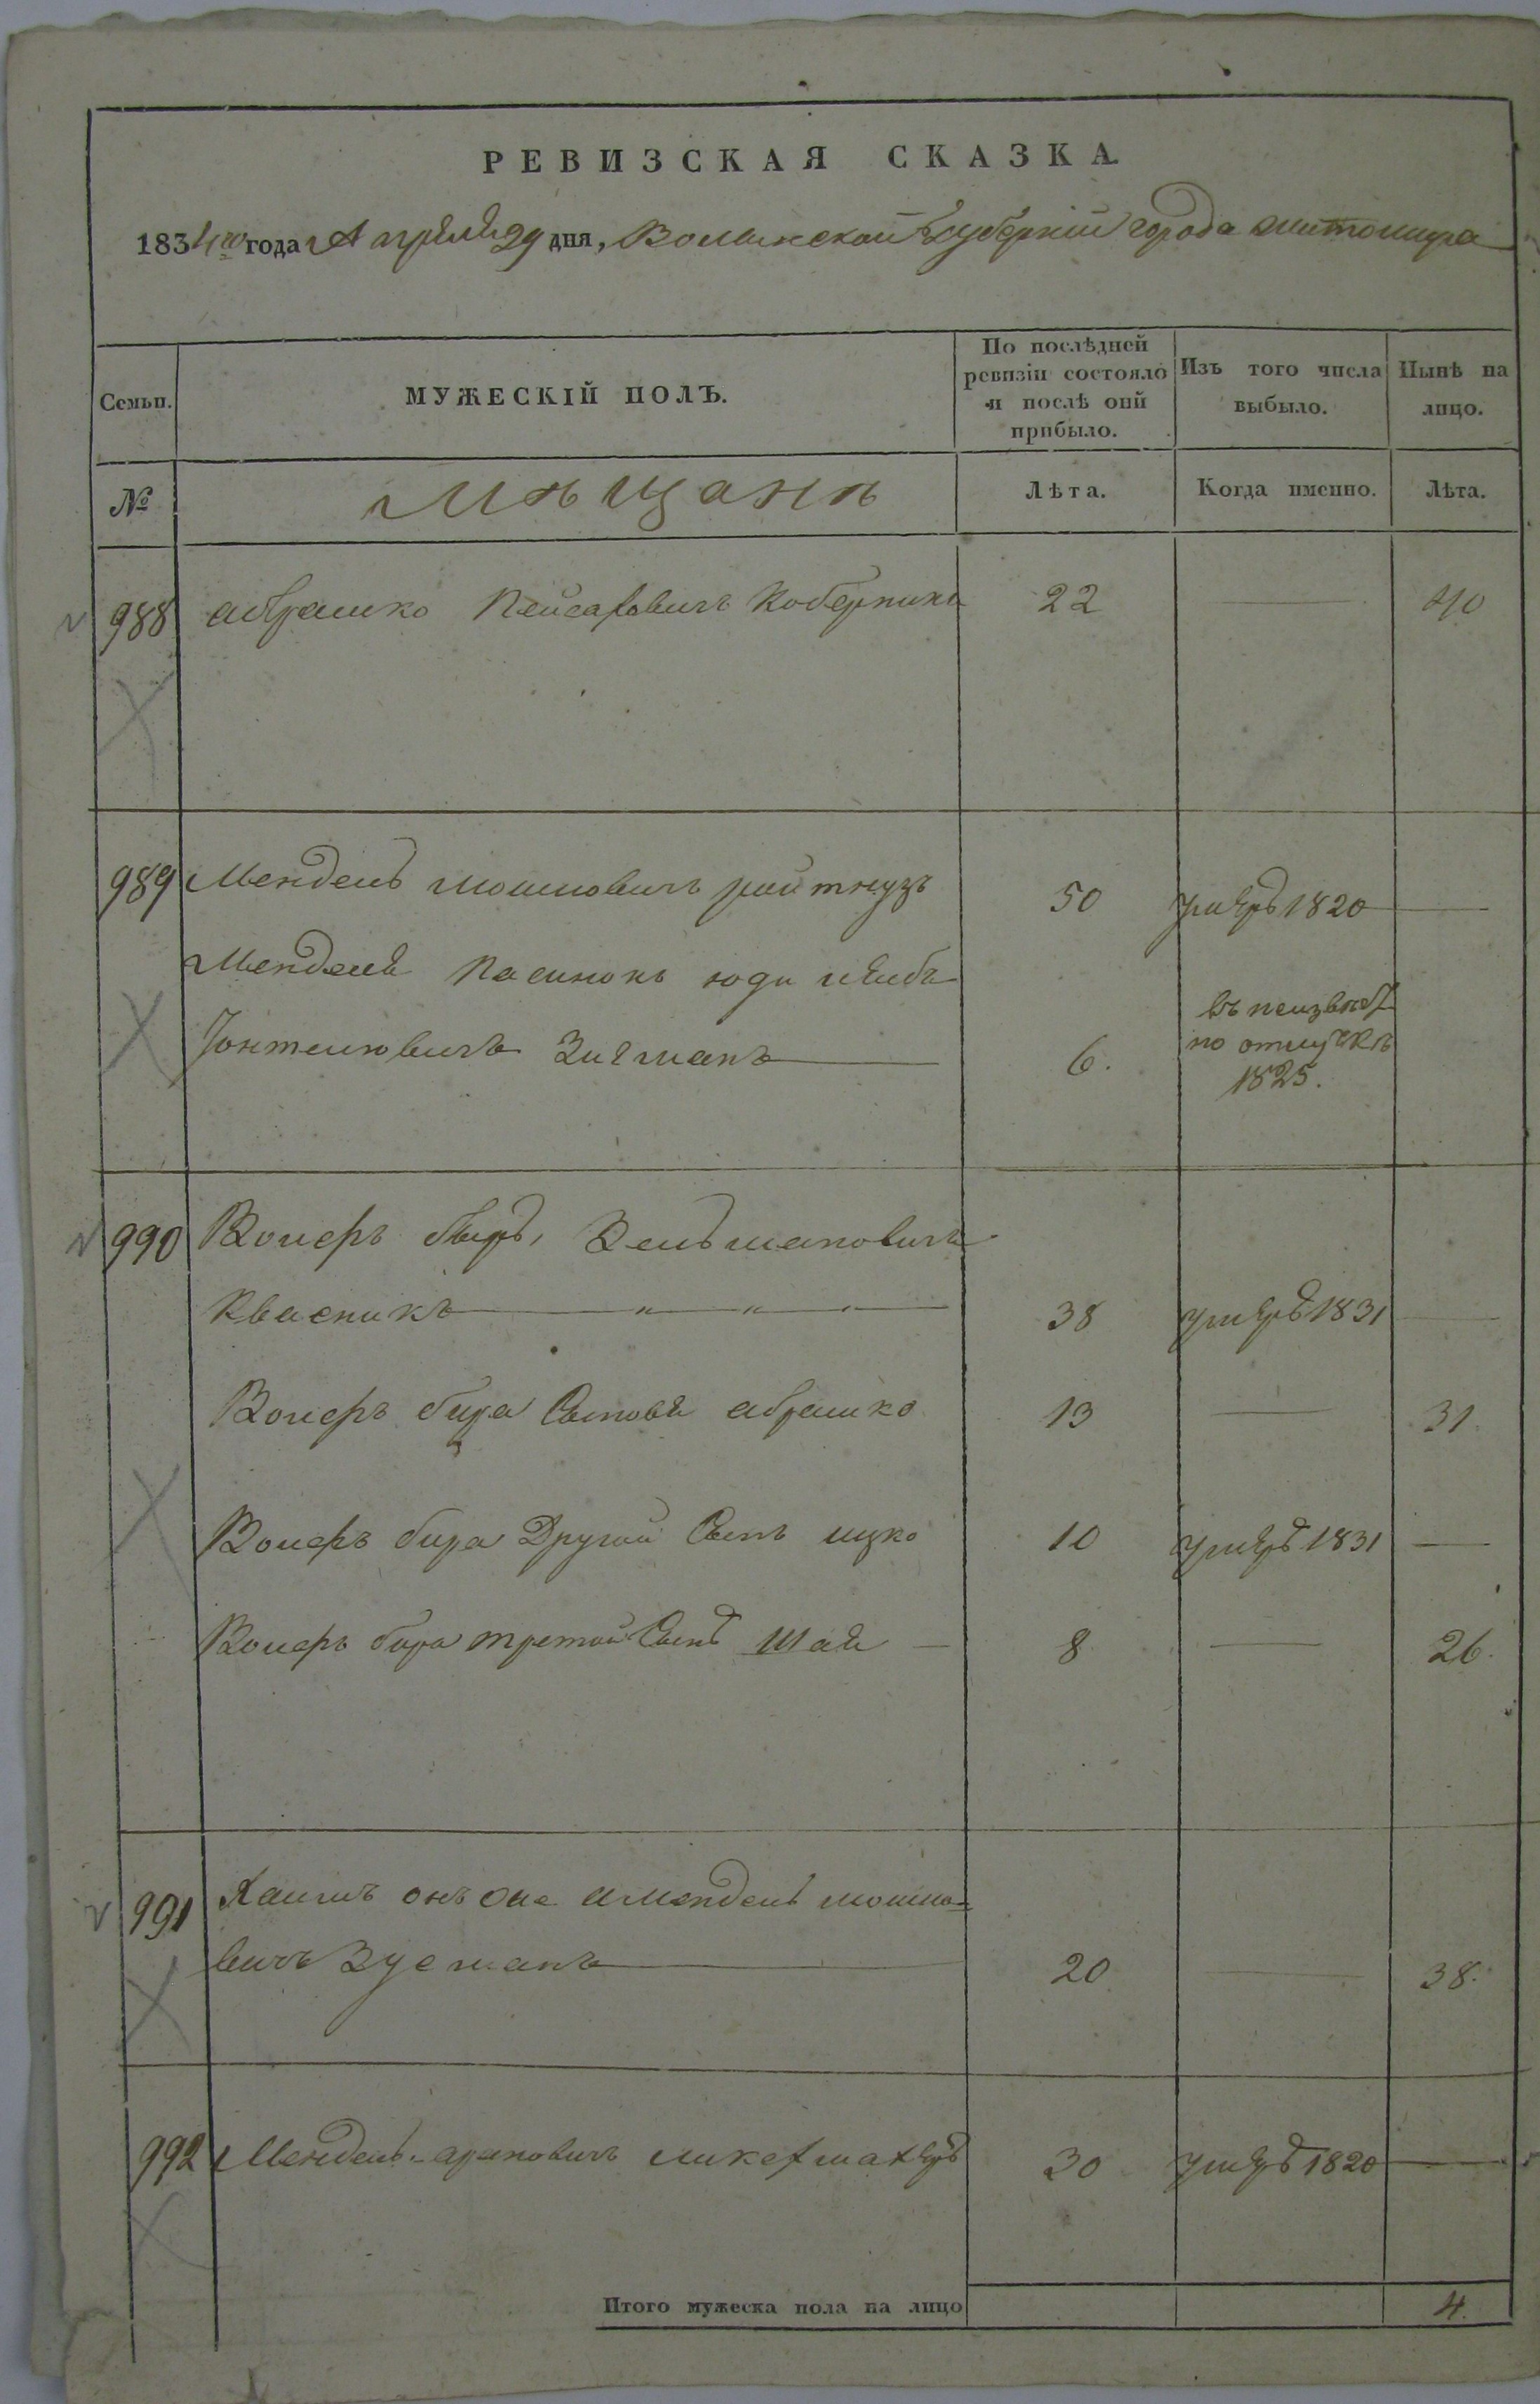 РЕВИЗСКАЯ СКАЗКА.
1834го года Апреля 29 дня, Волынской Губерніи города Житомира
Семьи. МУЖЕСКІЙ ПОЛЪ. По послѣдней ревизіи состояло и послѣ оній прибыло. Изъ того числа выбыло. Нынѣ на лицо.
№ Мѣщанѣ Лѣта. Когда именно. Лѣта.
988 абрашко Пейсаховичъ Коберникъ 22 — 40
989 Мендель мошковичъ 50 умеръ 1820 —
Менделя пасинокъ юди
Зигманъ 6. въ неизвест по отлучкѣ 1825.
990 Волеръ беръ, Зельмановичъ
Квасникъ 38 умеръ 1831 —
Волеръ бера Сыновя абрашко 13 — 31.
Волеръ бера Другой Сынъ ицко 10 умеръ 1831 —
Волеръ бера третой Сынъ шая — 8 — 26.
991 Хаимъ онъ оже имендель мошко-
вичъ Зусманъ 20 — 38.
992 Мендель 30 умеръ 1820 —
Итого мужеска пола на лицо 4.